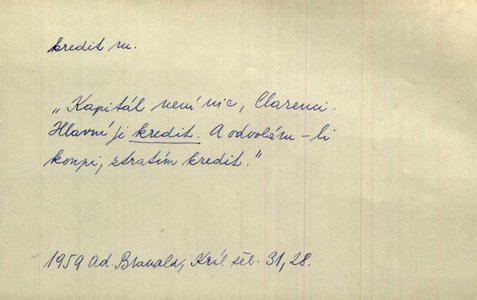 kredit m.
„Kapitál není nic, Clarenci.
Hlavní je kredit. A odvolám-li
koupi, ztratím kredit."
1959 Ad. Branald, Král žel. 31, 28.